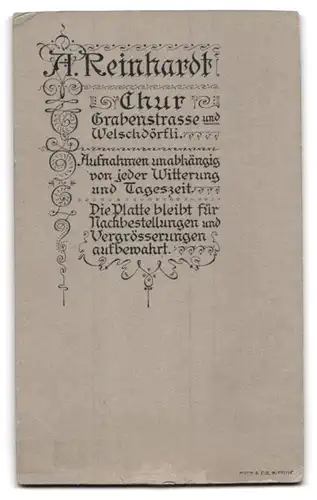 A. Reinhardt
Chur
Grabenstrasse und
Welschdörfli.
Aufnahmen unabhängig
von jeder Witterung
und Tageszeit.
Die Platte bleibt für
Nachbestellungen und
Vergrösserungen
aufbewahrt.